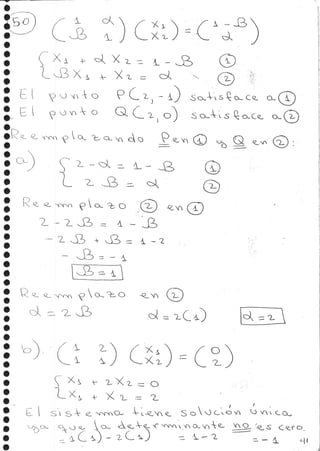 50) ( 1 α ; B 1 ) ( X1 ; X2 ) = ( 1 - B ; α )
{ X1 + α X2 = 1 - B ①
B X1 + X2 = α ②
El punto P(2, -1) satisface a ①
El punto Q(2, 0) satisface a ②
Reemplazando P en ① y Q en ②:
a) { 2 - α = 1 - B ①
2 B = α ②
Reemplazo ② en ①
2 - 2 B = 1 - B
- 2 B + B = 1 - 2
- B = - 1
B = 1
Reemplazo en ②
α = 2 B α = 2(1) α = 2
b) ( 1 2 ; 1 1 ) ( X1 ; X2 ) = ( 0 ; 2 )
{ X1 + 2 X2 = 0
X1 + X2 = 2
El sistema tiene solución única
ya que la determinante no es cero.
= 1(1) - 2(1) = 1 - 2 = - 1